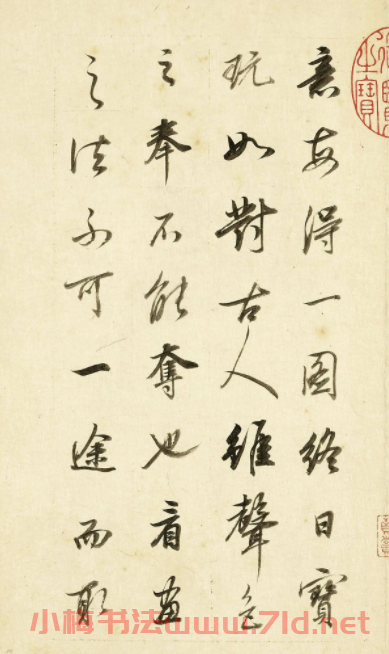 意每得一图终日宝
玩如對古人雖聲色
之奉不能奪也看畫
之法不可一途而取
小梅书法www.7ld.net